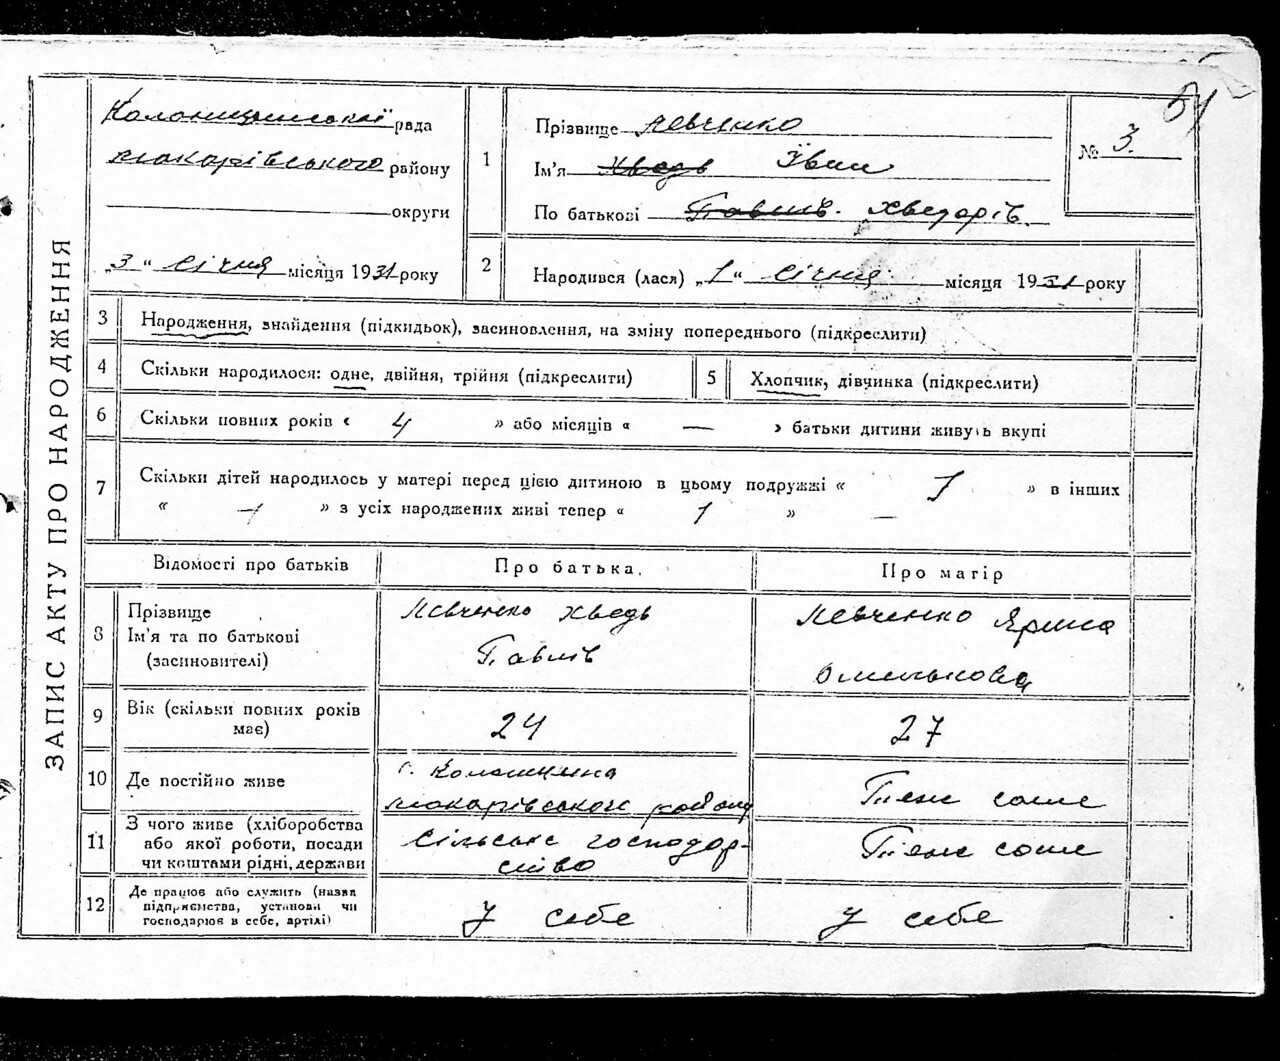 51
ЗАПИС АКТУ ПРО НАРОДЖЕННЯ
Колонщинської рада
Макарівського району
округи
„3“ Січня місяця 1931 року
1
Прізвище Левченко
Ім'я Хведь Іван
По батькові Павлів. Хведорів.
№ 3.
2
Народився (лася) „1“ Січня місяця 1931 року
3 Народження, знайдення (підкидьок), засиновлення, на зміну попереднього (підкреслити)
4 Скільки народилося: одне, двійня, трійня (підкреслити)
5 Хлопчик, дівчинка (підкреслити)
6 Скільки повних років « 4 » або місяців « — » батьки дитини живуть вкупі
7 Скільки дітей народилось у матері перед цією дитиною в цьому подружжі « 1 » в інших
« — » з усіх народжених живі тепер « 1 » —
Відомості про батьків Про батька. Про матір
8 Прізвище
Ім'я та по батькові
(засиновителі)
Левченко Хведь
Павлів
Левченко Ярина
Омелькова
9 Вік (скільки повних років
має)
24
27
10 Де постійно живе
с. Колонщина
Макарівського району
Теж саме
11 З чого живе (хліборобства
або якої роботи, посади
чи коштами рідні, держави
Сільське господар-
ство
Теж саме
12 Де працює або служить (назва
підприємства, установи чи
господарює в себе, артілі)
У себе
У себе